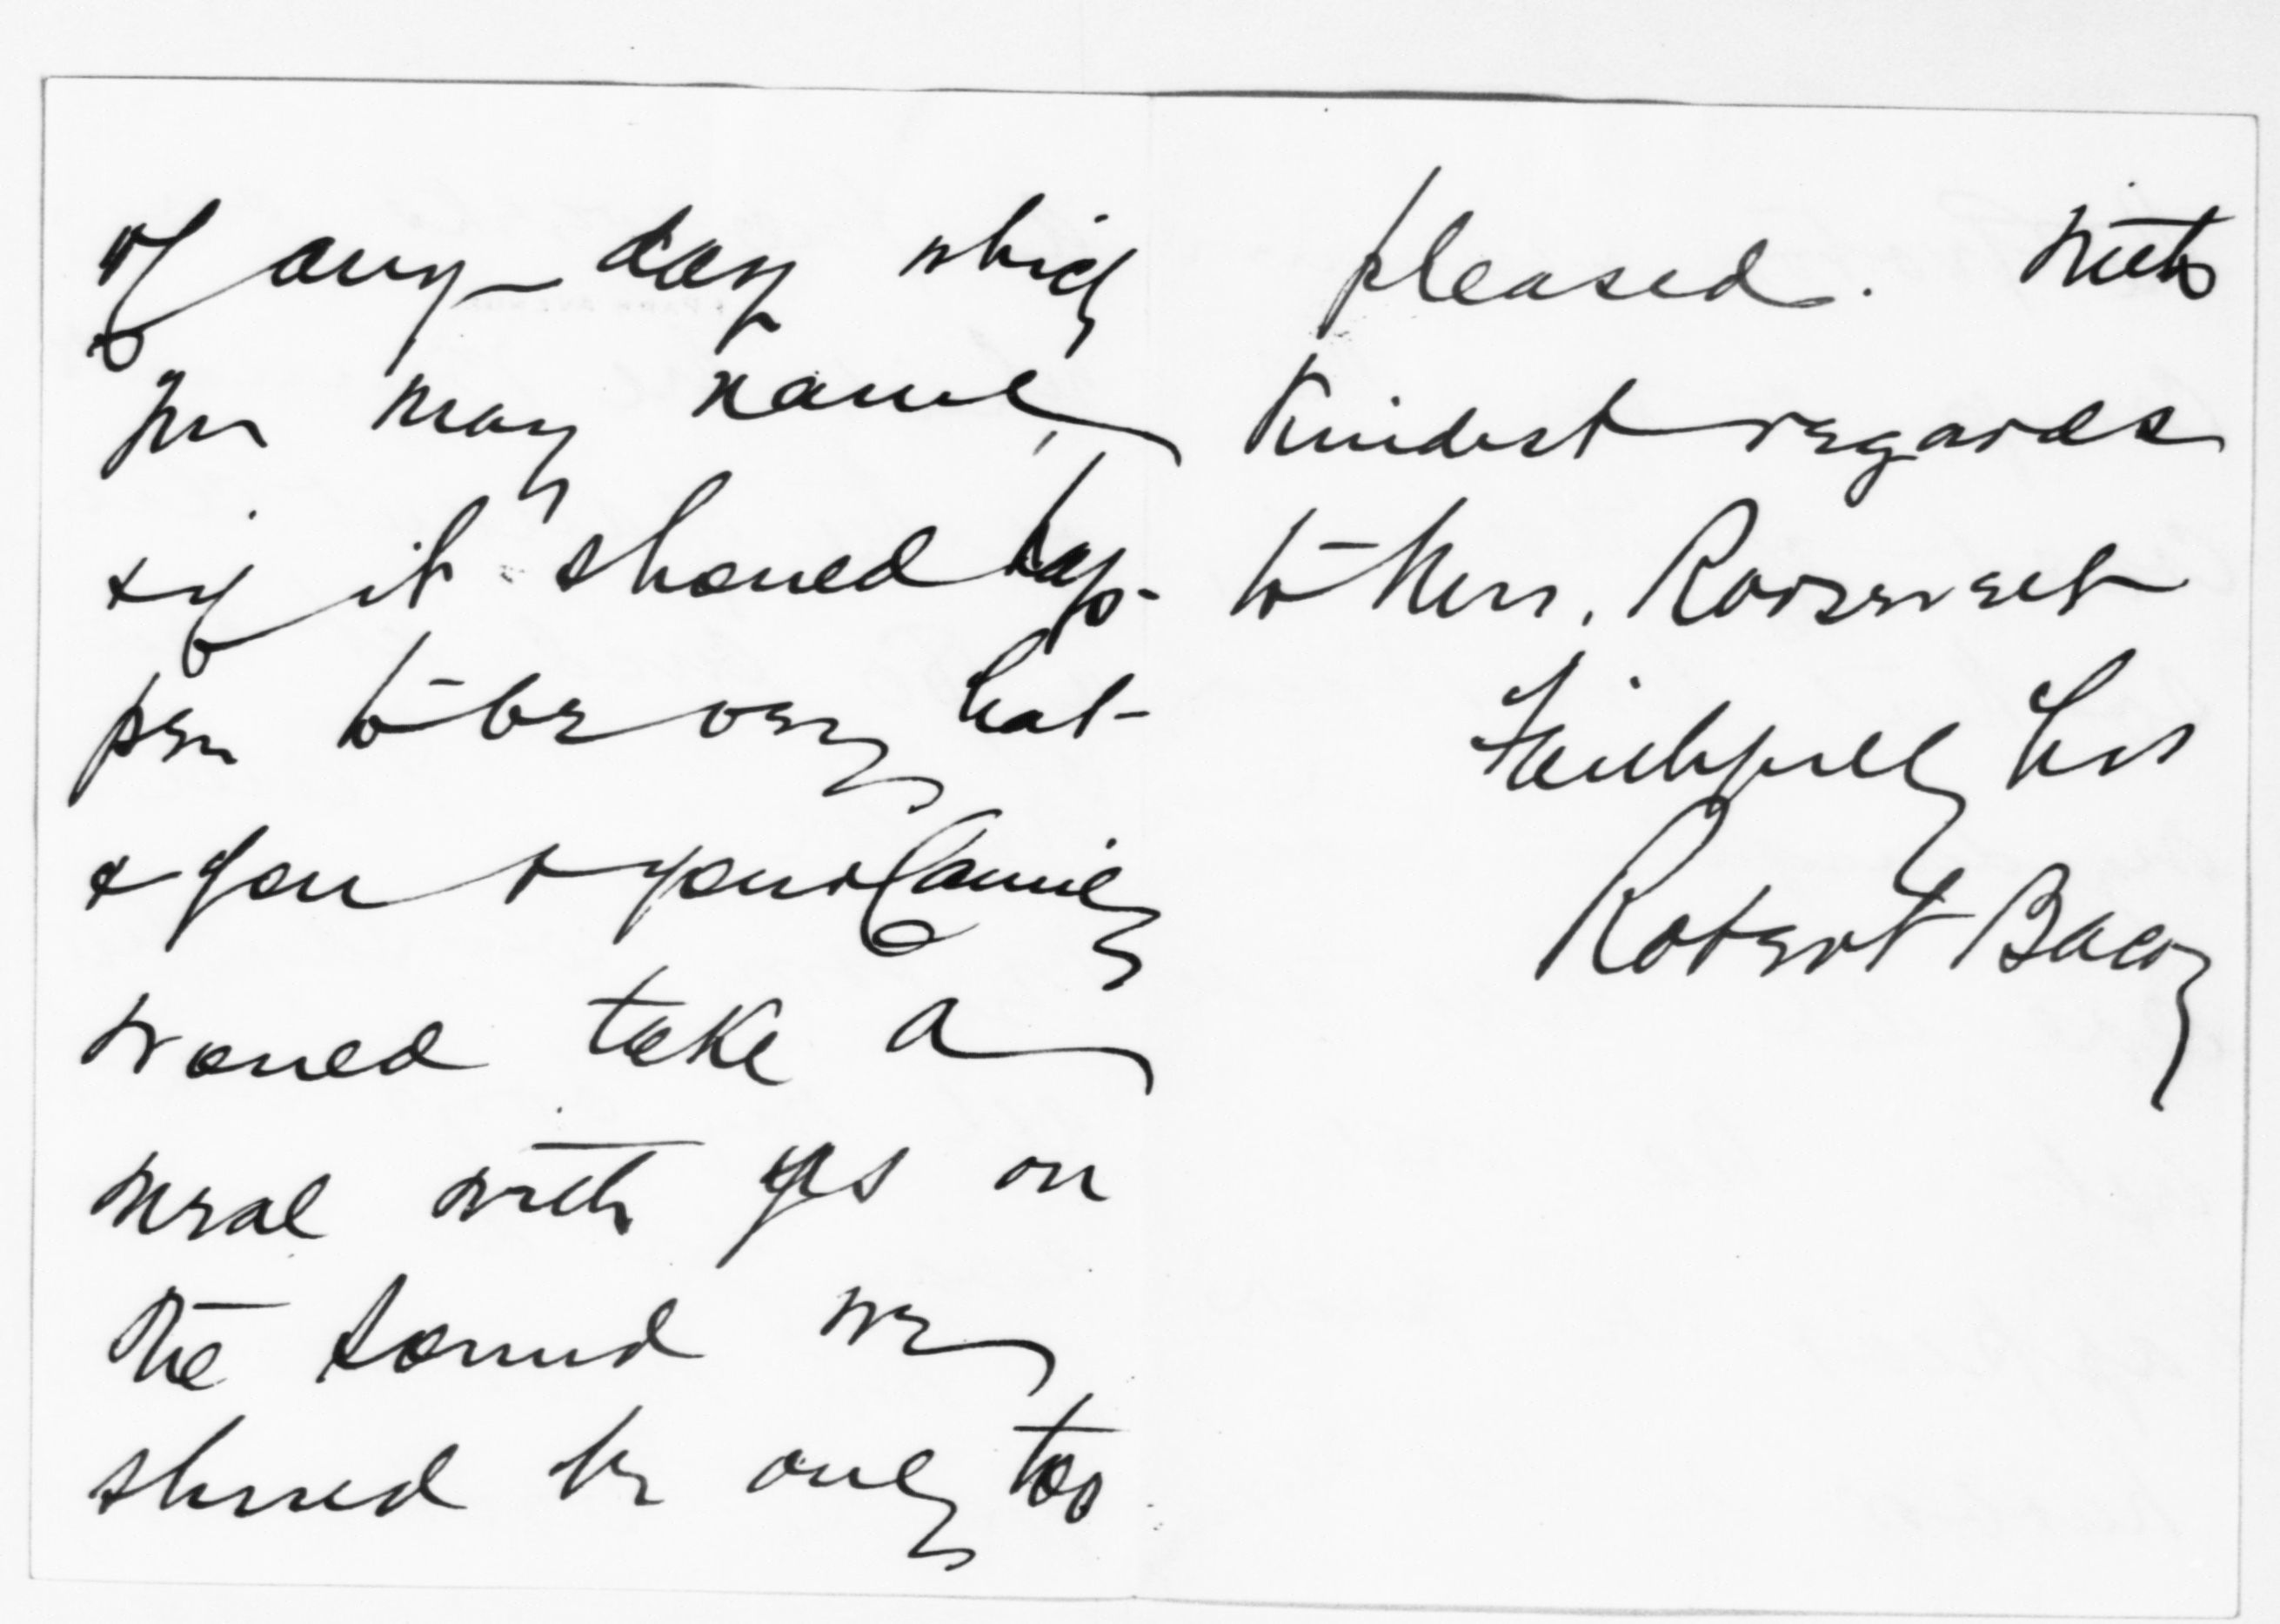 of any day which
you may name,
& if it should hap-
pen to be very hot
& you & your family
would take a
meal with us on
the Sound we
should be only too
pleased. With
kindest regards
to Mrs. Roosevelt
Faithfully Yrs
Robert Bacon